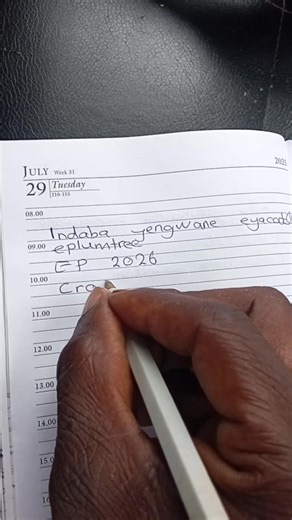 JULY Week 31
2025
29 Tuesday
210-155
08.00
Indaba yengwane
09.00 eplumtree
EP 2026
10.00
Cro
11.00
12.00
13.00
14.00
15.0
16